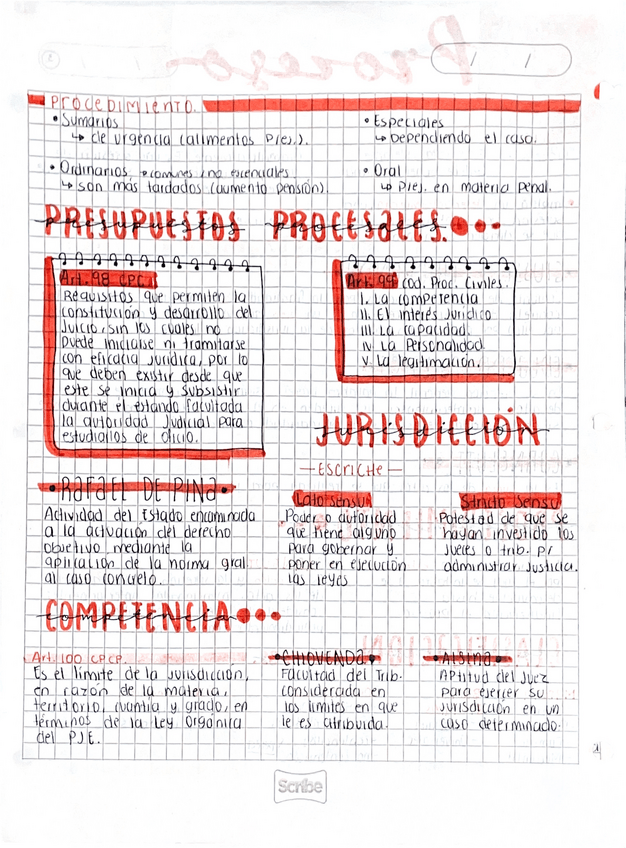 Procedimiento.
• Sumarios
↳ de urgencia (alimentos p/ej.).
• Ordinarios • comunes / no esenciales
↳ son más tardados (aumento pensión).
• Especiales
↳ Dependiendo el caso.
• Oral
↳ P/ej. en materia penal.
PRESUPUESTOS PROCESALES.
presupuestos procesales
Art. 98 CPC
Requisitos que permiten la
constitución y desarrollo del
Juicio, sin los cuales no
puede iniciarse ni tramitarse
con eficacia jurídica, por lo
que deben existir desde que
este se inicia y subsistir
durante el estando facultada
la autoridad Judicial para
estudiarlos de oficio.
Art. 99 Cod. Proc. Civiles.
I. La competencia
II. El interés Jurídico
III. La capacidad.
IV. La Personalidad.
V. La legitimación.
JURISDICCIÓN
jurisdicción
— ESCRICHE —
• RAFAEL DE PINA •
Actividad del Estado encaminada
a la actuación del derecho
objetivo mediante la
aplicación de la norma gral
al caso concreto.
Lato sensu
Poder o autoridad
que tiene alguno
para gobernar y
poner en ejecución
las leyes
Stricto Sensu
Potestad de que se
hayan investido los
jueces o trib. p/
administrar Justicia.
COMPETENCIA
competencia
Art. 100 CPCP.
Es el límite de la Jurisdicción,
en razón de la materia,
territorio, cuantía y grado, en
términos de la Ley Orgánica
del PJE.
• CHIOVENDA •
Facultad del Trib.
considerada en
los límites en que
le es atribuida.
• ALSINA •
Aptitud del Juez
para ejercer su
Jurisdicción en un
caso determinado.
Scribe